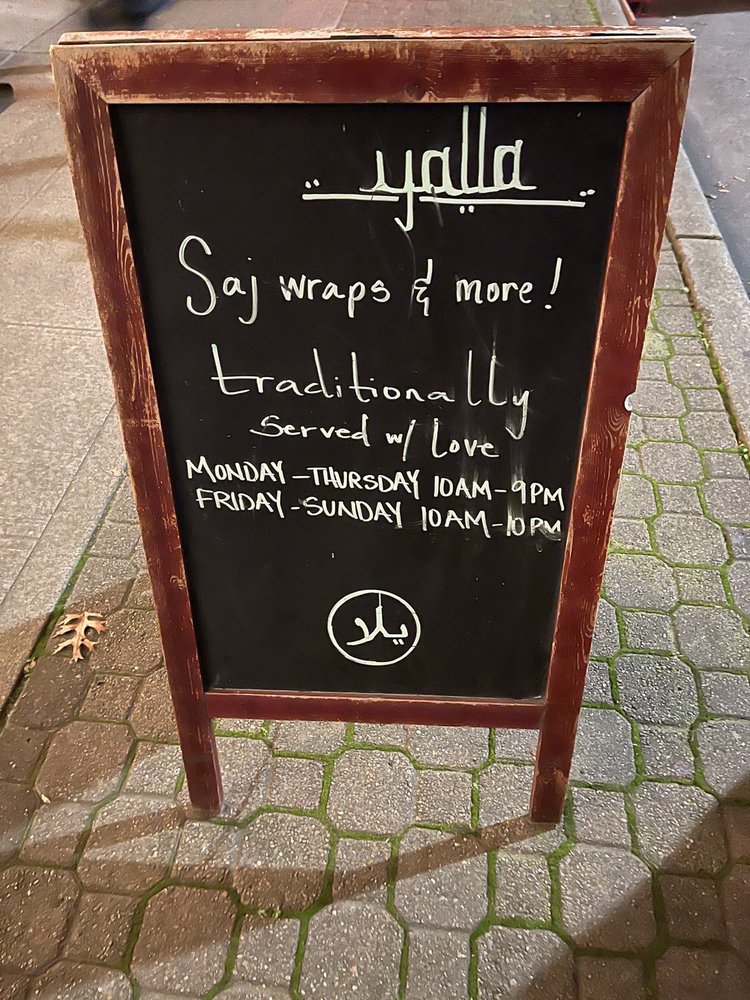 yalla
Saj wraps & more!
traditionally
served w/ Love
MONDAY - THURSDAY 10AM - 9PM
FRIDAY - SUNDAY 10AM - 10PM
يلا